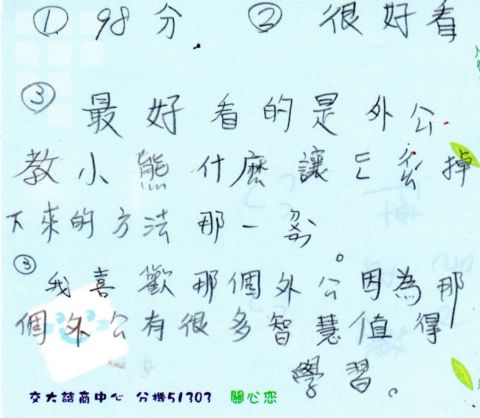 ① 98分 ② 很好看
③ 最好看的是外公
教小熊什麼讓 掉
下來的方法那一 。
③ 我喜歡那個外公因為那
個外公有很多智慧值得
學習。
交大諮商中心 分機51303 關心您